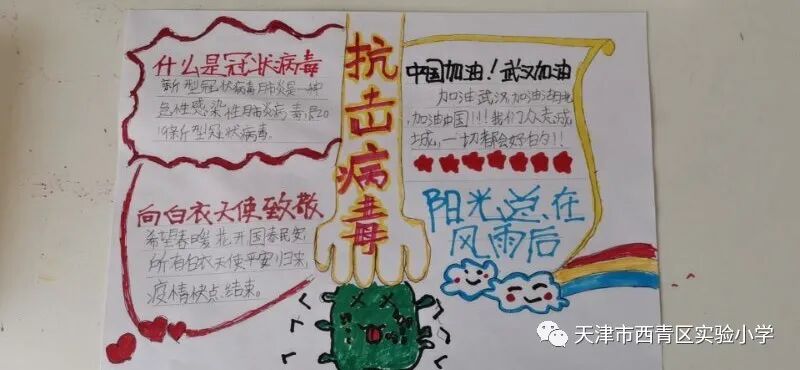 什么是冠状病毒
新型冠状病毒肺炎是一种
急性感染性肺炎病毒是20
19新型冠状病毒
向白衣天使致敬
希望春暖花开国泰民安
所有白衣天使平安归来
疫情快点结束。
抗击病毒
中国加油！武汉加油
加油武汉加油湖北
加油中国!!!我们众志成
城，一切都会好的!!
阳光总在
风雨后
天津市西青区实验小学